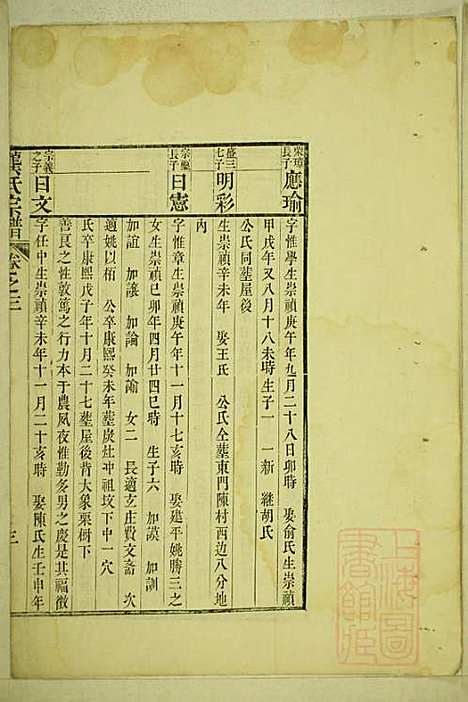 榮璋長子 應瑜
字惟學生崇禎庚午年九月二十八日卯時 娶俞氏生崇禎
甲戌年又八月十八未時生子一 一新 繼胡氏
公氏同塟屋後
盛三七子 明彩
生崇禎辛未年 娶王氏 公氏仝塟東門陳村西边八分地
内
長子 日憲
字惟章生崇禎庚午年十一月十七亥時 娶進平姚勝三之
女生崇禎己卯年四月廿四巳時 生子六 加謨 加訓
加誼 加讓 加論 加諭 女二 長適玄庄費文斋 次
適姚以栢 公卒康熙癸未年塟炭灶冲祖坟下中一穴
氏卒康熙戊子年十月二十七塟屋後背大象栗树下
宗義之子 日文
善良之性敦篤之行力本于農夙夜惟勤多男之慶是其福徵
字任中生崇禎辛未年十一月二十亥時 娶陳氏生壬申年
氏宗譜 卷之三 三
上海圖書館藏